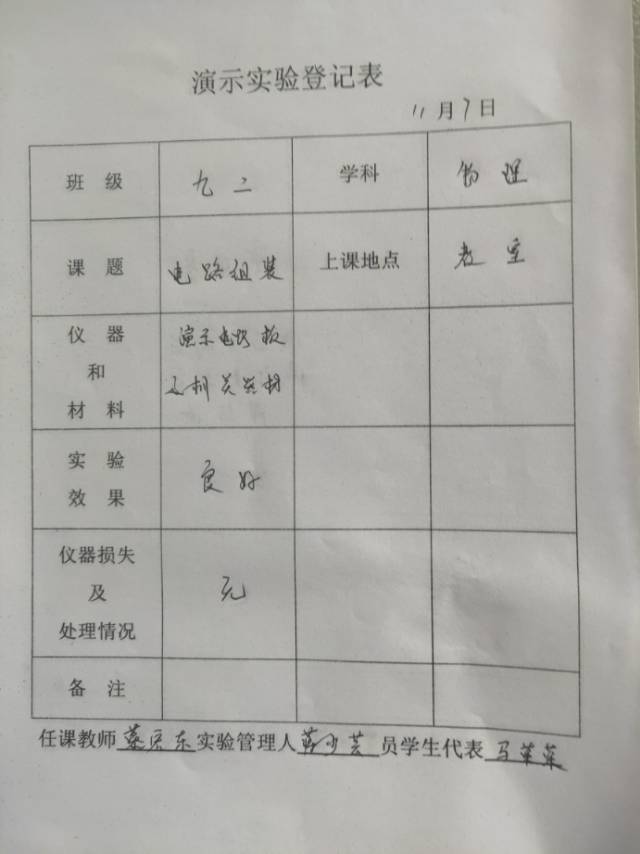 演示实验登记表
11月7日
班 级 九二 学科 物理
课 题 电路组装 上课地点 教室
仪 器
和
材 料
演示电路板
及相关器材
实 验
效 果
良好
仪器损失
及
处理情况
无
备 注
任课教师 实验管理人 员学生代表